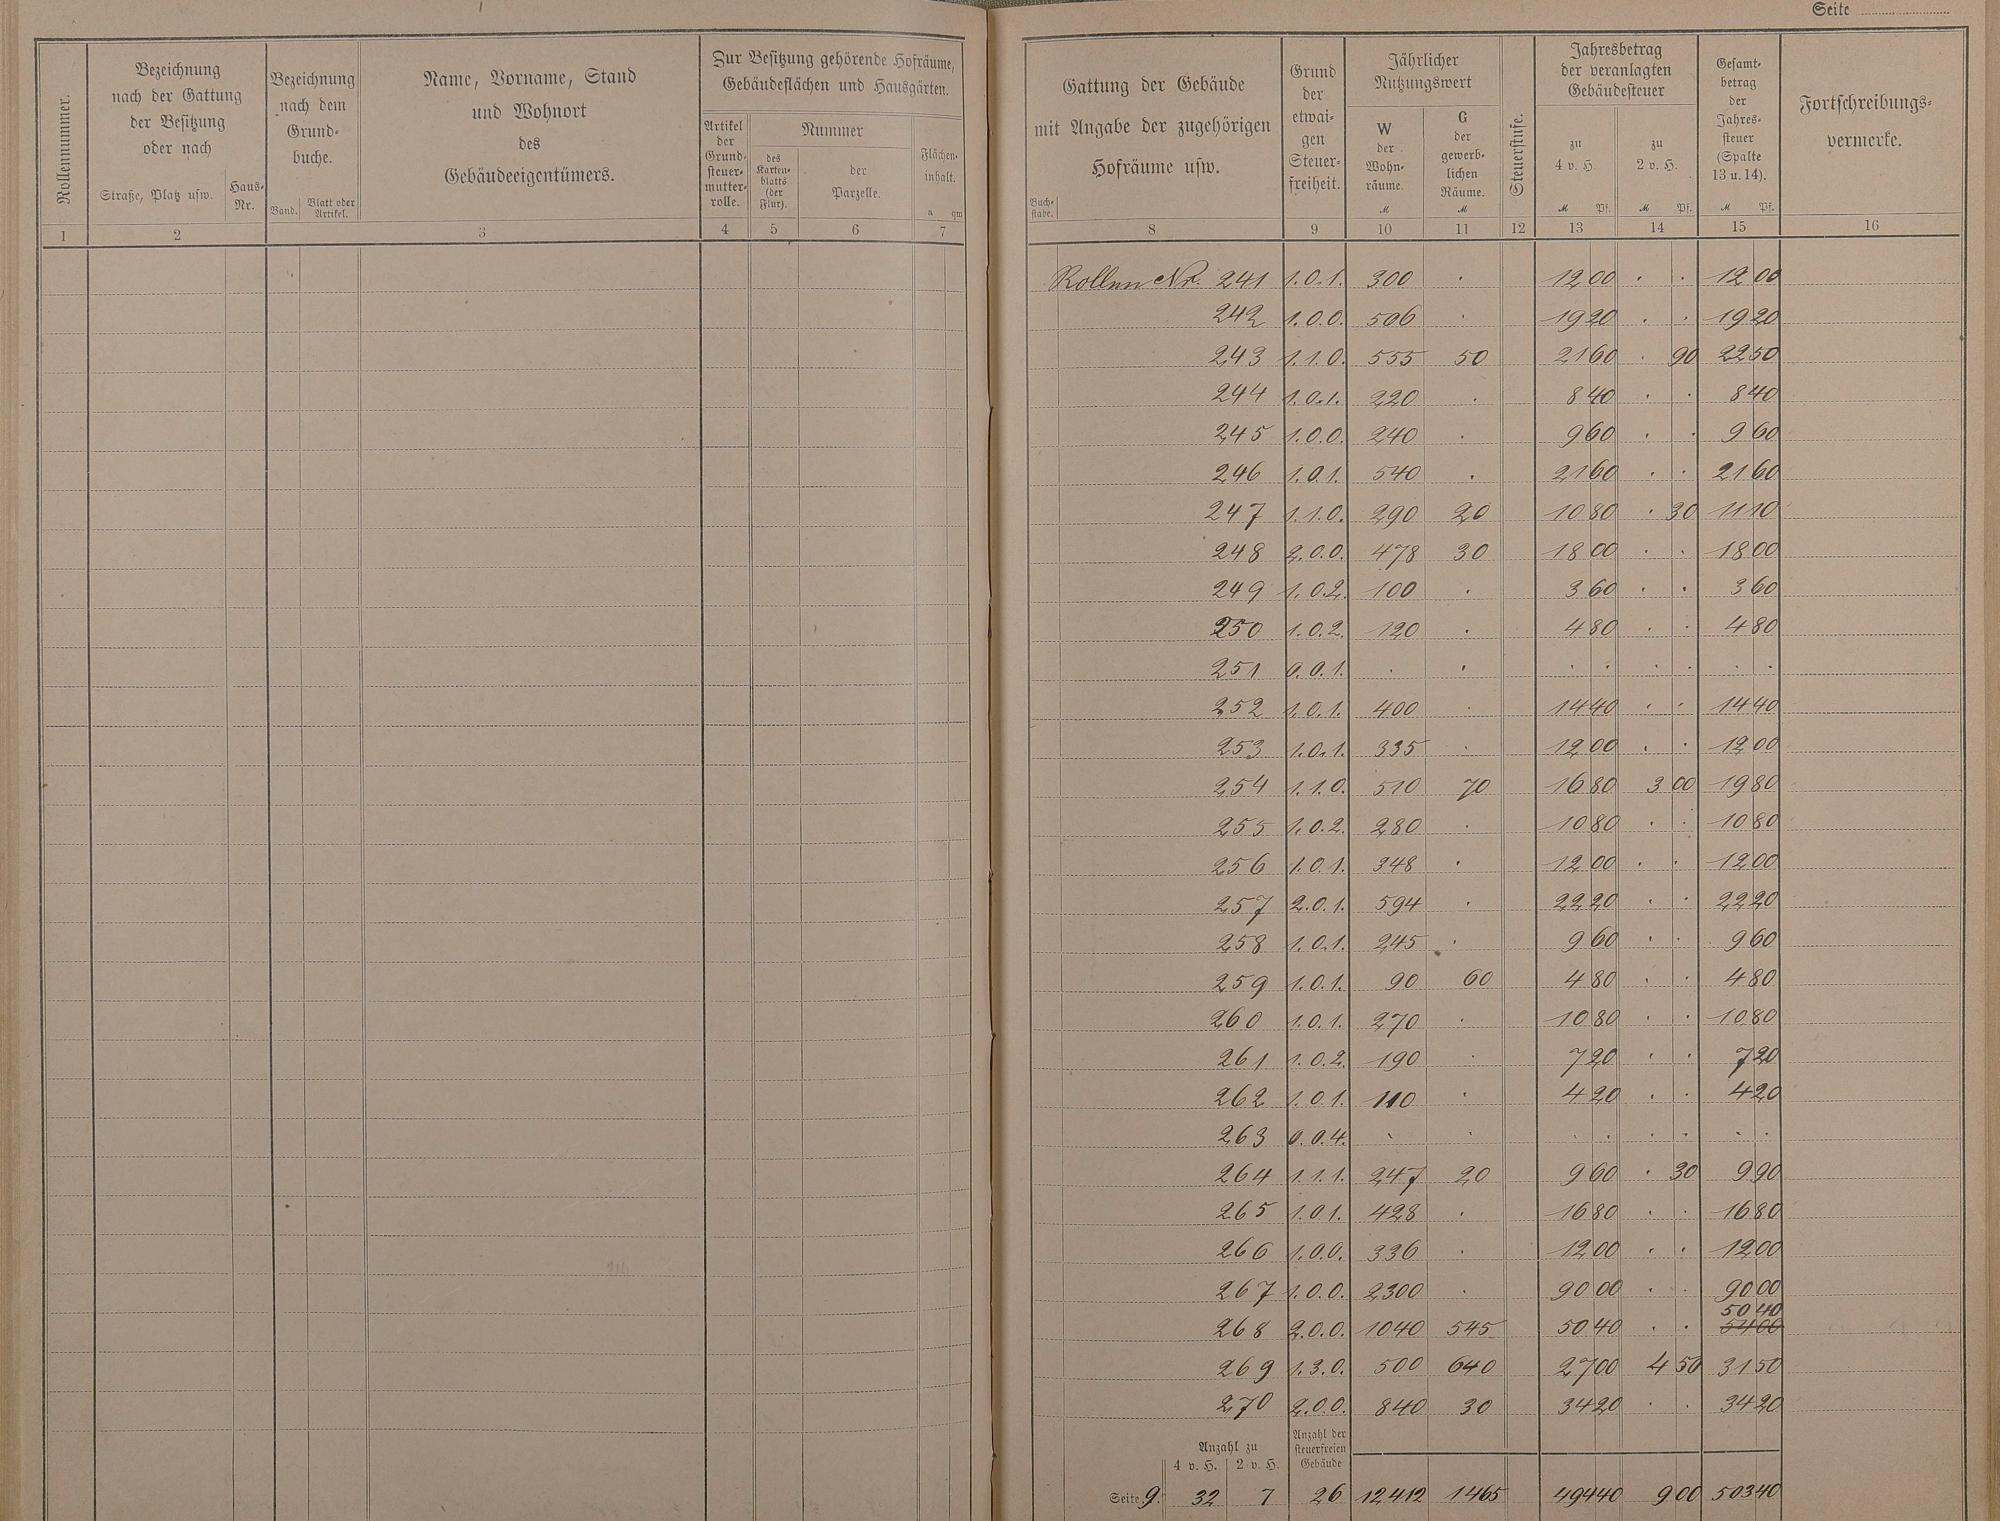 Seite
Rollennummer.
Bezeichnung
nach der Gattung
der Besitzung
oder nach
Straße, Platz usw.
Haus-
Nr.
Bezeichnung
nach dem
Grund-
buche.
Band.
Blatt oder
Artikel.
Name, Vorname, Stand
und Wohnort
des
Gebäudeeigentümers.
Zur Besitzung gehörende Hofräume,
Gebäudeflächen und Hausgärten.
Artikel
der
Grund-
steuer-
mutter-
rolle.
Nummer
des
Karten-
blatts
(der
Flur).
der
Parzelle.
Flächen-
inhalt.
a qm
1 2 3 4 5 6 7
Gattung der Gebäude
mit Angabe der zugehörigen
Hofräume usw.
Buch-
stabe.
Grund
der
etwai-
gen
Steuer-
freiheit.
Jährlicher
Nutzungswert
W
der
Wohn-
räume.
M
G
der
gewerb-
lichen
Räume.
M
Steuerstufe.
Jahresbetrag
der veranlagten
Gebäudesteuer
zu
4 v. H.
M Pf.
zu
2 v. H.
M Pf.
Gesamt-
betrag
der
Jahres-
steuer
(Spalte
13 u. 14).
M Pf.
Fortschreibungs-
vermerke.
8 9 10 11 12 13 14 15 16
Rollen Nr. 241 1.0.1. 300 . 12 00 . . 12 00
242 1.0.0. 506 . 19 20 . . 19 20
243 1.1.0. 555 50 21 60 . 90 22 50
244 1.0.1. 220 . 8 40 . . 8 40
245 1.0.0. 240 . 9 60 . . 9 60
246 1.0.1. 540 . 21 60 . . 21 60
247 1.1.0. 290 20 10 80 . 30 11 10
248 2.0.0. 478 30 18 00 . . 18 00
249 1.0.2. 100 . 3 60 . . 3 60
250 1.0.2. 120 . 4 80 . . 4 80
251 0.0.1. . . . . . . . .
252 1.0.1. 400 . 14 40 . . 14 40
253 1.0.1. 335 . 12 00 . . 12 00
254 1.1.0. 510 70 16 80 3 00 19 80
255 1.0.2. 280 . 10 80 . . 10 80
256 1.0.1. 348 . 12 00 . . 12 00
257 2.0.1. 594 . 22 20 . . 22 20
258 1.0.1. 245 . 9 60 . . 9 60
259 1.0.1. 90 60 4 80 . . 4 80
260 1.0.1. 270 . 10 80 . . 10 80
261 1.0.2. 190 . 7 20 . . 7 20
262 1.0.1. 110 . 4 20 . . 4 20
263 0.0.4. . . . . . . . .
264 1.1.1. 247 20 9 60 . 30 9 90
265 1.0.1. 428 . 16 80 . . 16 80
266 1.0.0. 336 . 12 00 . . 12 00
267 1.0.0. 2300 . 90 00 . . 90 00
50 40
268 2.0.0. 1040 545 50 40 . . 54 60
269 1.3.0. 500 640 27 00 4 50 31 50
270 2.0.0. 840 30 34 20 . . 34 20
Anzahl zu
4 v. H. 2 v. H.
Anzahl der
steuerfreien
Gebäude
Seite 9. 32 7 26 12412 1465 494 40 9 00 503 40